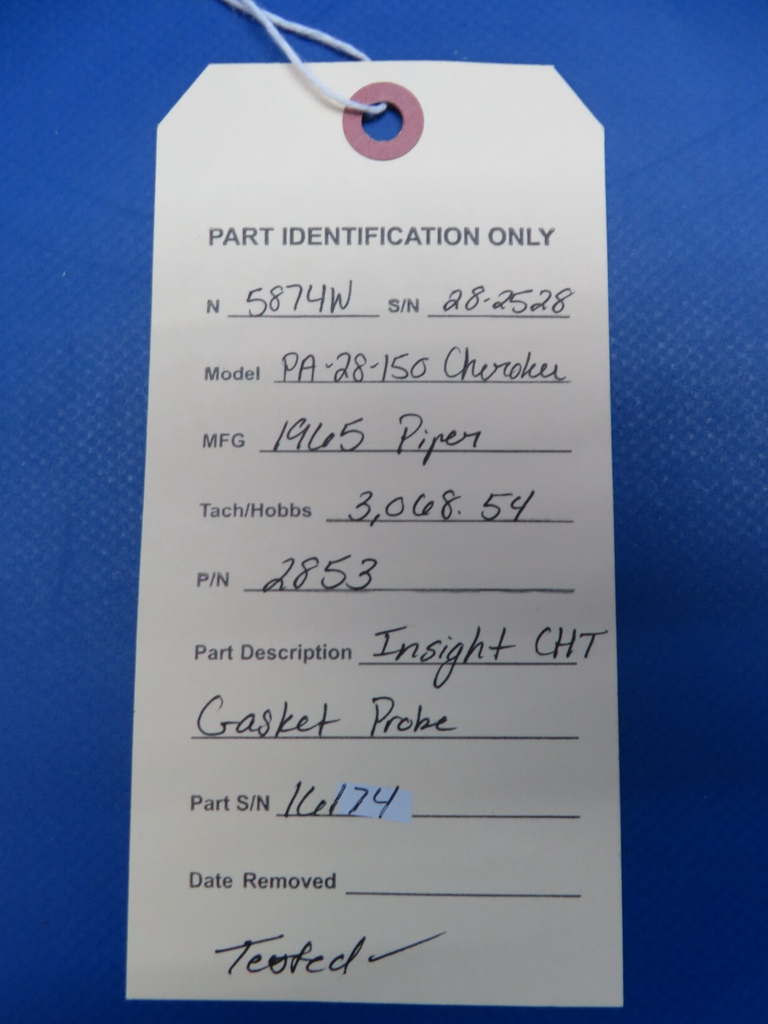 PART IDENTIFICATION ONLY
N 5874W S/N 28-2528
Model PA-28-150 Cherokee
MFG 1965 Piper
Tach/Hobbs 3,068.54
P/N 2853
Part Description Insight CHT
Gasket Probe
Part S/N 16174
Date Removed
Tested ✓